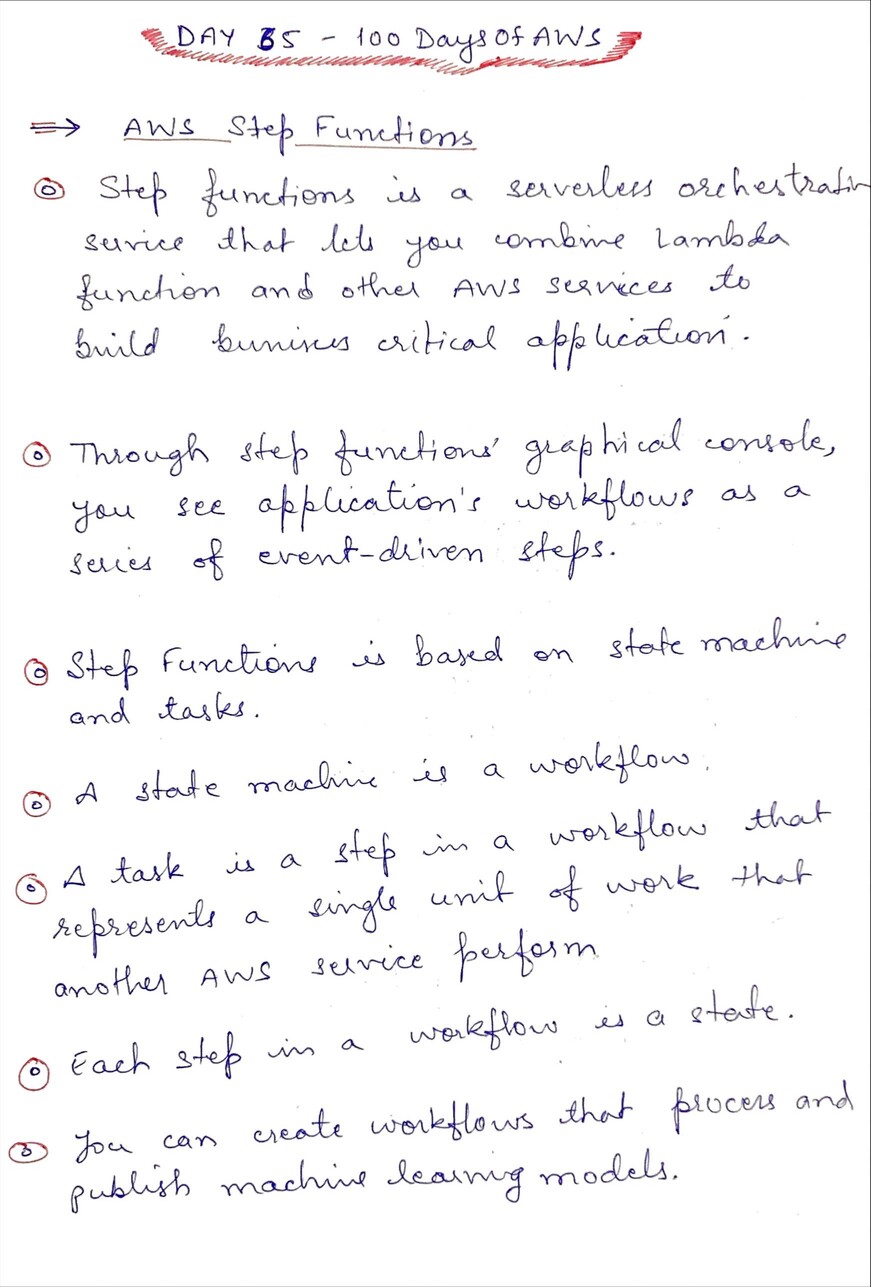 DAY 65 - 100 Days Of AWS
⇒ AWS Step Functions
Step functions is a serverless orchestration
service that lets you combine Lambda
function and other AWS services to
build buniness critical application.
Through step functions' graphical console,
you see application's workflows as a
series of event-driven steps.
Step Functions is based on state machine
and tasks.
A state machine is a workflow.
A task is a step in a workflow that
represents a single unit of work that
another AWS service perform
Each step in a workflow is a state.
You can create workflows that process and
publish machine learning models.